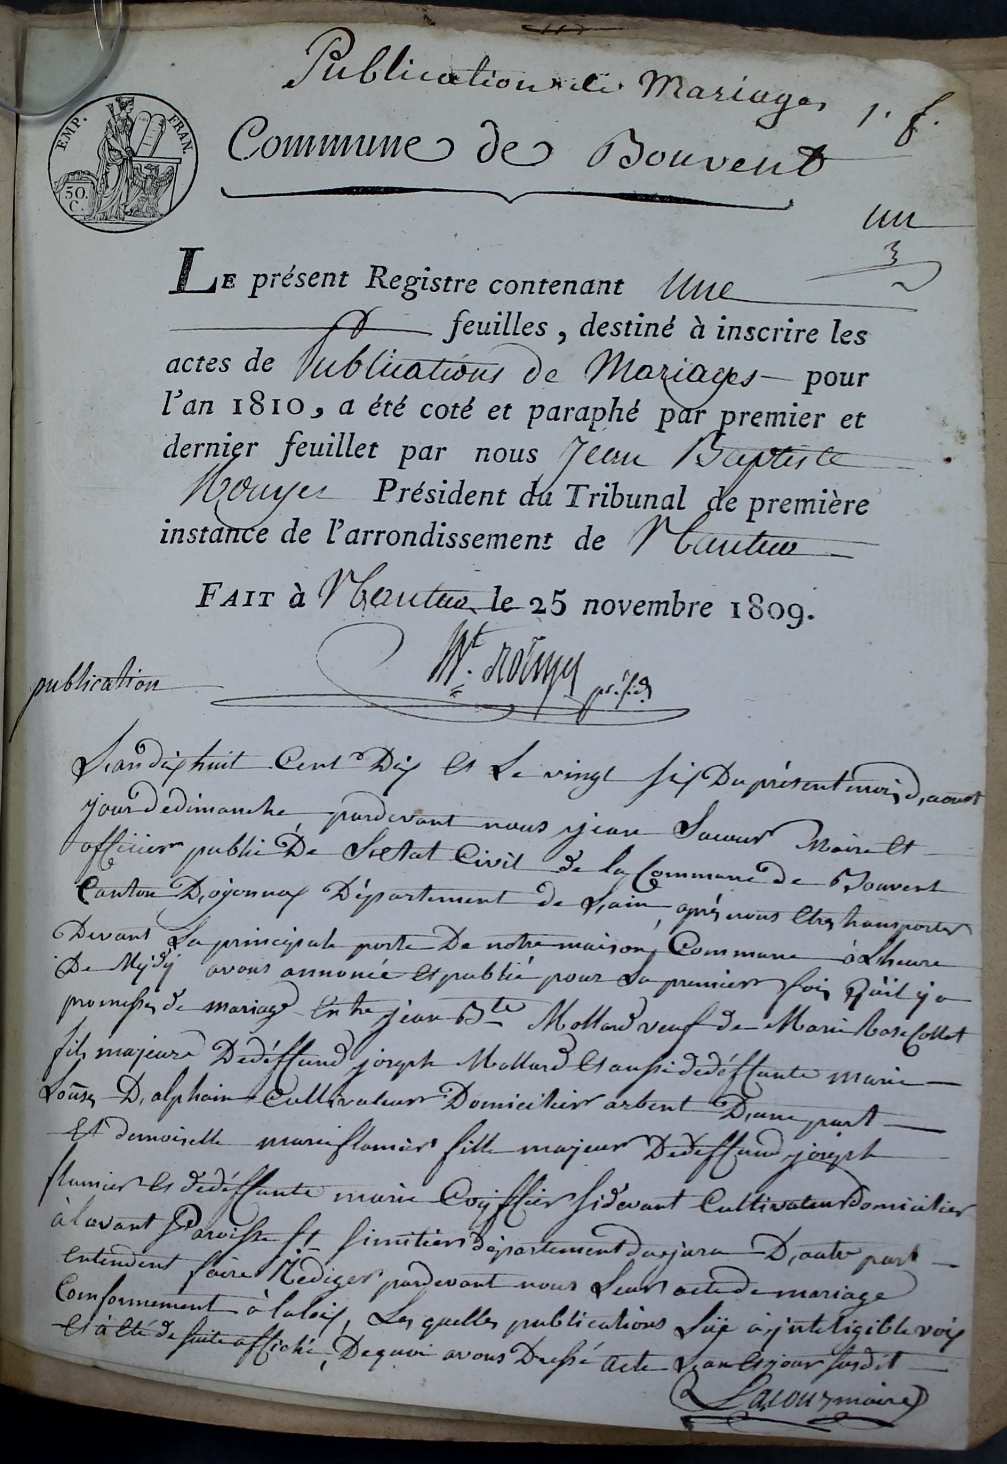 Publication de Mariages 1. f.
EMP. FRAN.
50 C.
Commune de Bouvent
un
3
LE présent Registre contenant Une
feuilles, destiné à inscrire les
actes de Publications de Mariages pour
l'an 1810, a été coté et paraphé par premier et
dernier feuillet par nous Jean Baptiste
Rouyer Président du Tribunal de première
instance de l'arrondissement de Nantua
FAIT à Nantua le 25 novembre 1809.
présid
publication
L'an dix huit Cent Dix et Le vingt six Du présent mois D'aoust
jour de dimanche pardevant nous jean Lacour Maire et
officier public De L'état Civil de la Commune de Bouvent
Canton D'oyonnax Département de L'ain, après nous etres transporter
Devant La principale porte De notre maison Commune à Lheure
De Mydy avons annoncée et publié pour La premier fois Qu'il y a
promesses de mariage entre jean Bte Mollard veuf de Marie Rose Collet
fils majeure Dedéffund joseph Mollard et aussi dedéffunte marie
Louise D'alphain Cultivateur Domicilier arbent D'une part
Et demoiselle marie flamier fille majeur Dedeffund joseph
flamier et dedéffunte marie Coiffier sidevant Cultivateur domicilier
à lavant Paroisse St Département du jura D'autre part
entendent faire Rediger pardevant nous Leur acte de mariage
Conformement à la loix, Les quelles publications Lüe à inteligible voix
et à été de suite affiché, De quoi avons Dressé acte L'an et jour susdit
Lacour maire